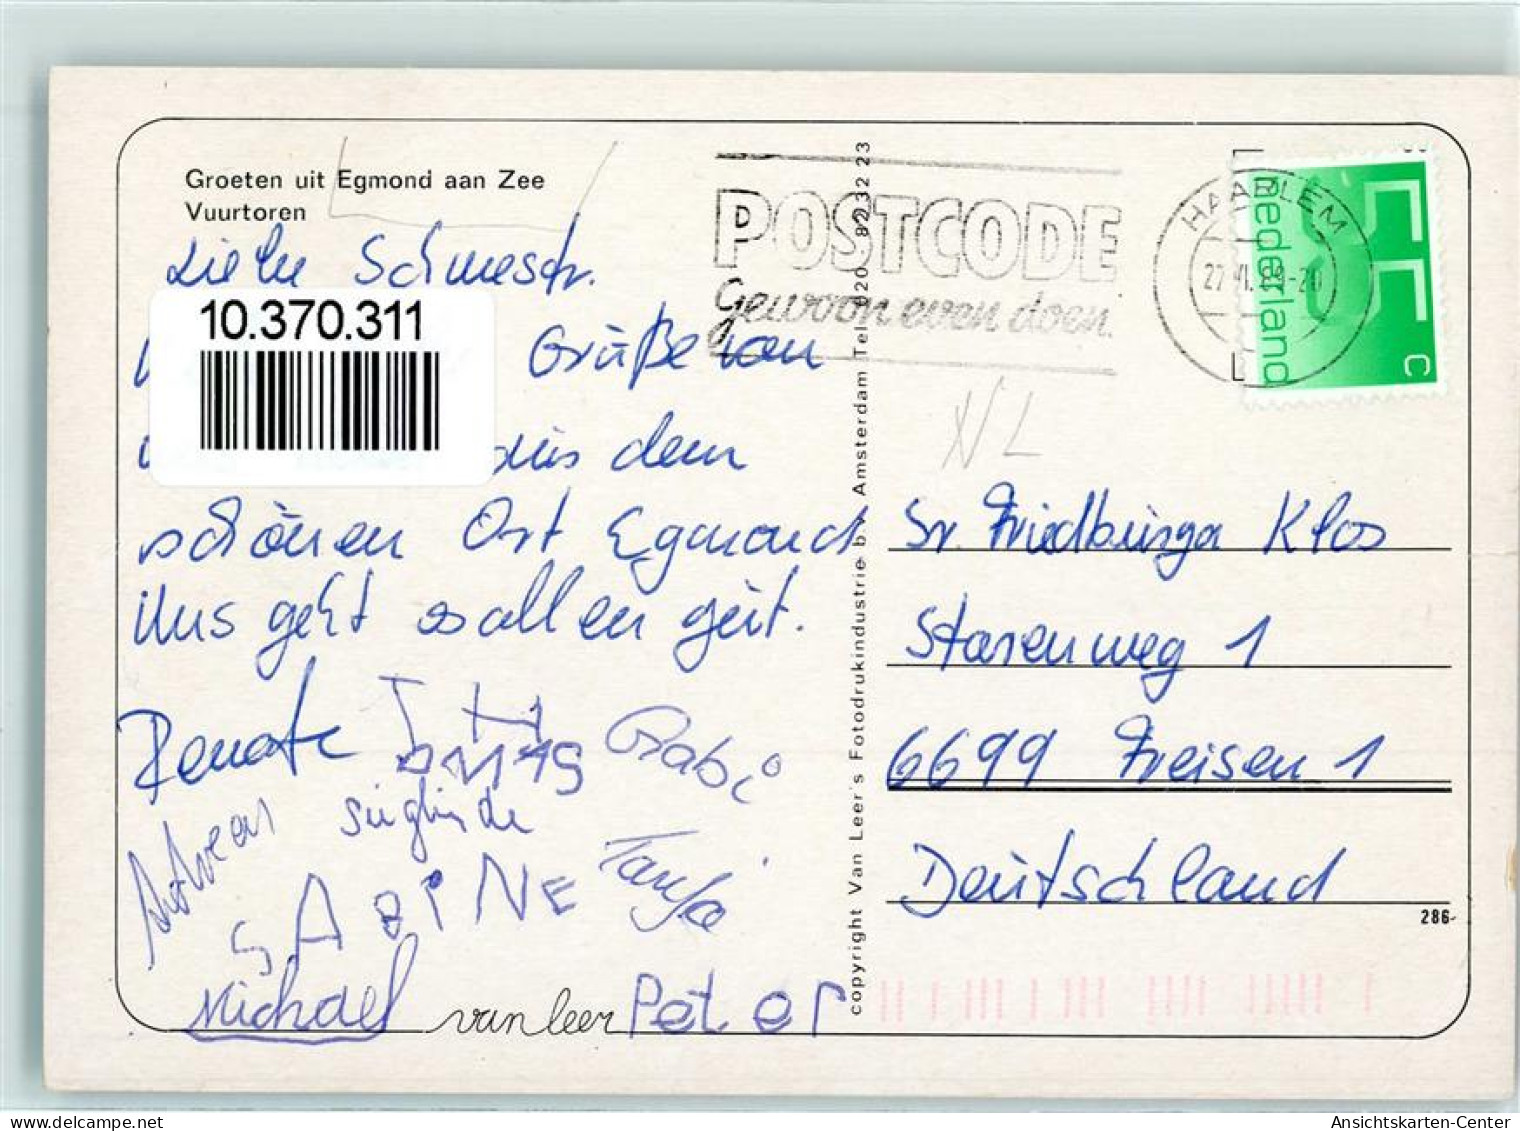 Groeten uit Egmond aan Zee
Vuurtoren
Liebe Schwestr.
10.370.311
Grüße von
aus dem
schönen Ort Egmond
Uns geht es allen gut.
Renate THOMAS Gabi
Andreas Sieglinde
SABINE Tanja
Michael van leer Peter
copyright Van Leer's Fotodrukindustrie b.v. Amsterdam Tel. 020 - 823223
POSTCODE
Gewoon even doen.
HAARLEM
27.VI.89-20
Nederland
55 c
NL
Sr. Friedburga Klos
Starenweg 1
6699 Freisen 1
Deutschland
286-
Ansichtskarten-Center